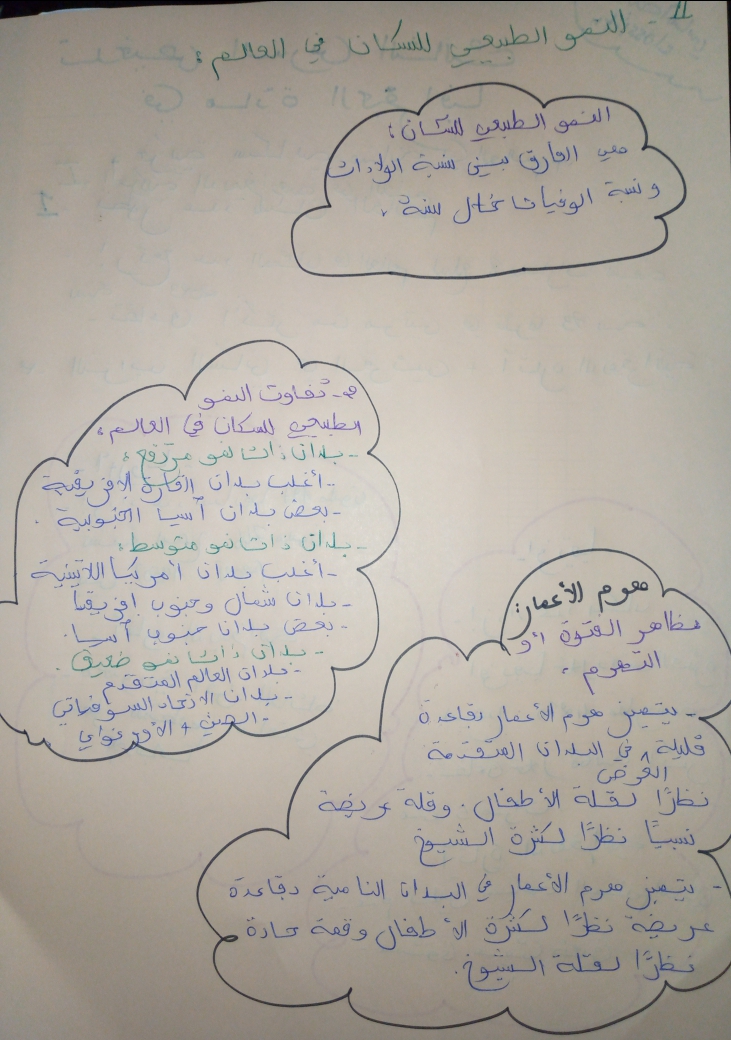 11 - النمو الطبيعي للسكان في العالم :
النمو الطبيعي للسكان :
هي الفارق بين نسبة الولادات
و نسبة الوفيات خلال سنة .
- تفاوت النمو
الطبيعي للسكان في العالم :
- بلدان ذات نمو مرتفع :
- أغلب بلدان القارة الافريقية
- بعض بلدان آسيا الجنوبية .
- بلدان ذات نمو متوسط :
- أغلب بلدان أمريكا اللاتينية
- بلدان شمال وجنوب افريقيا
- بعض بلدان جنوب آسيا .
- بلدان ذات نمو ضعيف .
- بلدان العالم المتقدم
- بلدان الاتحاد السوفياتي
- الصين + الأوروغواي
هرم الأعمار :
مظاهر الفتوة أو
التهرم .
- يتميز هرم الأعمار بقاعدة
قليلة العرض في البلدان المتقدمة
نظرًا لقلة الأطفال . وقمة عريضة
نسبيًا نظرًا لكثرة الشيوخ
- يتميز هرم الأعمار في البلدان النامية بقاعدة
عريضة نظرًا لكثرة الأطفال وقمة حادة
نظرًا لقلة الشيوخ .